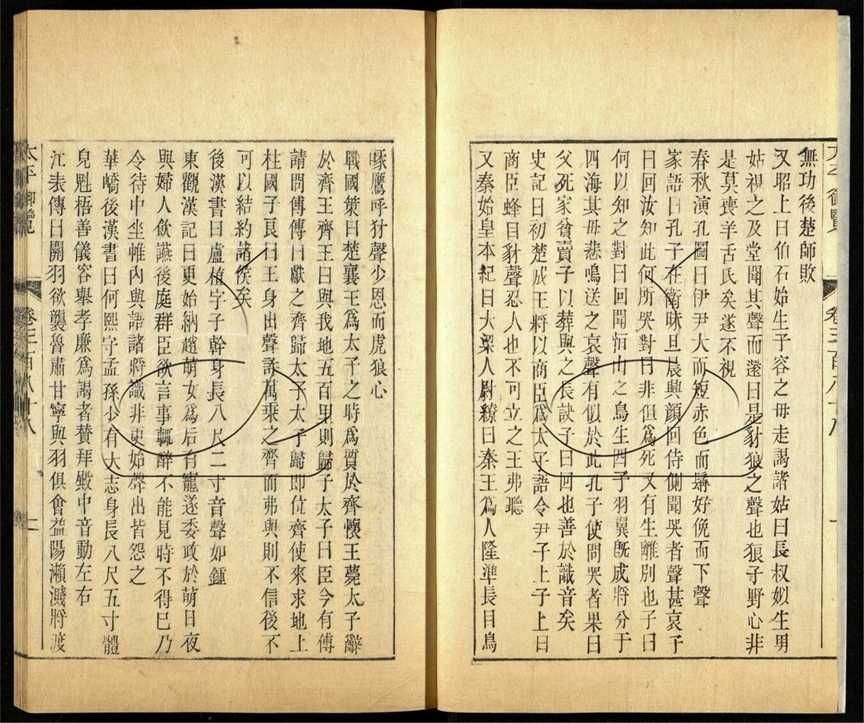 太平御覽 卷三百八十八
無功後楚師敗
又昭上曰伯石始生子容之母走謁諸姑曰長叔姒生男
姑視之及堂聞其聲而還曰是豺狼之聲也狼子野心非
是莫喪羊舌氏矣遂不視
春秋演孔圖曰伊尹大而短赤色而髯好俛而下聲
家語曰孔子在衛昧旦晨興顏回侍側聞哭者聲甚哀子
曰回汝知此何所哭對曰非但為死又有生離別也子曰
何以知之對曰回聞恒山之鳥生四子羽翼既成將分于
四海其母悲鳴送之哀聲有似於此孔子使問哭者果曰
父死家貧賣子以葬與之長訣子曰回也善於識音矣
史記曰初楚成王將以商臣為太子語令尹子上子上曰
商臣蜂目豺聲忍人也不可立之王弗聽
又秦始皇本紀曰大梁人尉繚曰秦王為人隆準長目鳥
啄鷹呼豺聲少恩而虎狼心
戰國策曰楚襄王為太子之時為質於齊懷王薨太子辭
於齊王齊王曰與我地五百里則歸子太子曰臣今有傅
請問傅傅曰獻之齊歸太子太子歸即位齊使來求地上
柱國子良曰王身出聲許萬乘之齊而弗與則不信後不
可以結約諸侯矣
後漢書曰盧植字子幹身長八尺二寸音聲如鍾
東觀漢記曰更始納趙萌女為后有寵遂委政於萌日夜
與婦人飲讌後庭群臣欲言事輒醉不能見時不得已乃
令侍中坐帷內與語諸將識非更始聲出皆怨之
華嶠後漢書曰何熙字孟孫少有大志身長八尺五寸體
皃魁梧善儀容舉孝廉為謁者贊拜殿中音動左右
江表傳曰關羽欲襲魯肅甘寧與羽俱會益陽瀨淺將渡
太平御覽 卷三百八十八 二